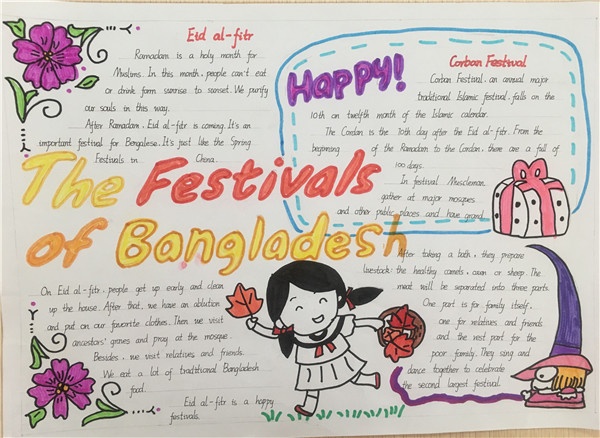 Eid al-fitr
Ramadam is a holy month for
Muslims. In this month, people can't eat
or drink form sunrise to sunset. We purify
our souls in this way.
After Ramadan, Eid al-fitr is coming. It's an
important festival for Bengalese. It's just like the Spring
Festivals in China.
The Festivals
of Bangladesh
On Eid al-fitr, people get up early and clean
up the house. After that, we have an ablution
and put on our favorite clothes. Then we visit
ancestors' graves and pray at the mosque.
Besides, we visit relatives and friends.
We eat a lot of traditional Bangladesh
food.
Eid al-fitr is a happy
festivals.
Happy!
Corban Festival
Corban Festival, an annual major
traditional Islamic festival, falls on the
10th on twelfth month of the Islamic calendar.
The Cordan is the 70th day after the Eid al-fitr. From the
beginning of the Ramadan to the Cordan, there are a full of
100 days.
In festival Muscleman
gather at major mosques
and other public places and have grand
After taking a bath, they prepare
livestock: the healthy camels, cown or sheep. The
meat will be separated into three parts.
One part is for family itself,
one for relatives and friends
and the rest part for the
poor family. They sing and
dance together to celebrate
the second largest festival.